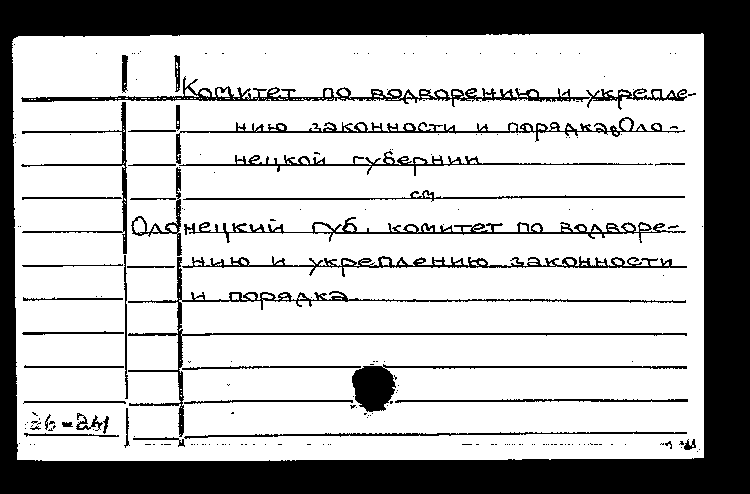 Комитет по водворению и укрепле-
нию законности и порядка в Оло-
нецкой губернии
см.
Олонецкий губ. комитет по водворе-
нию и укреплению законности
и порядка.